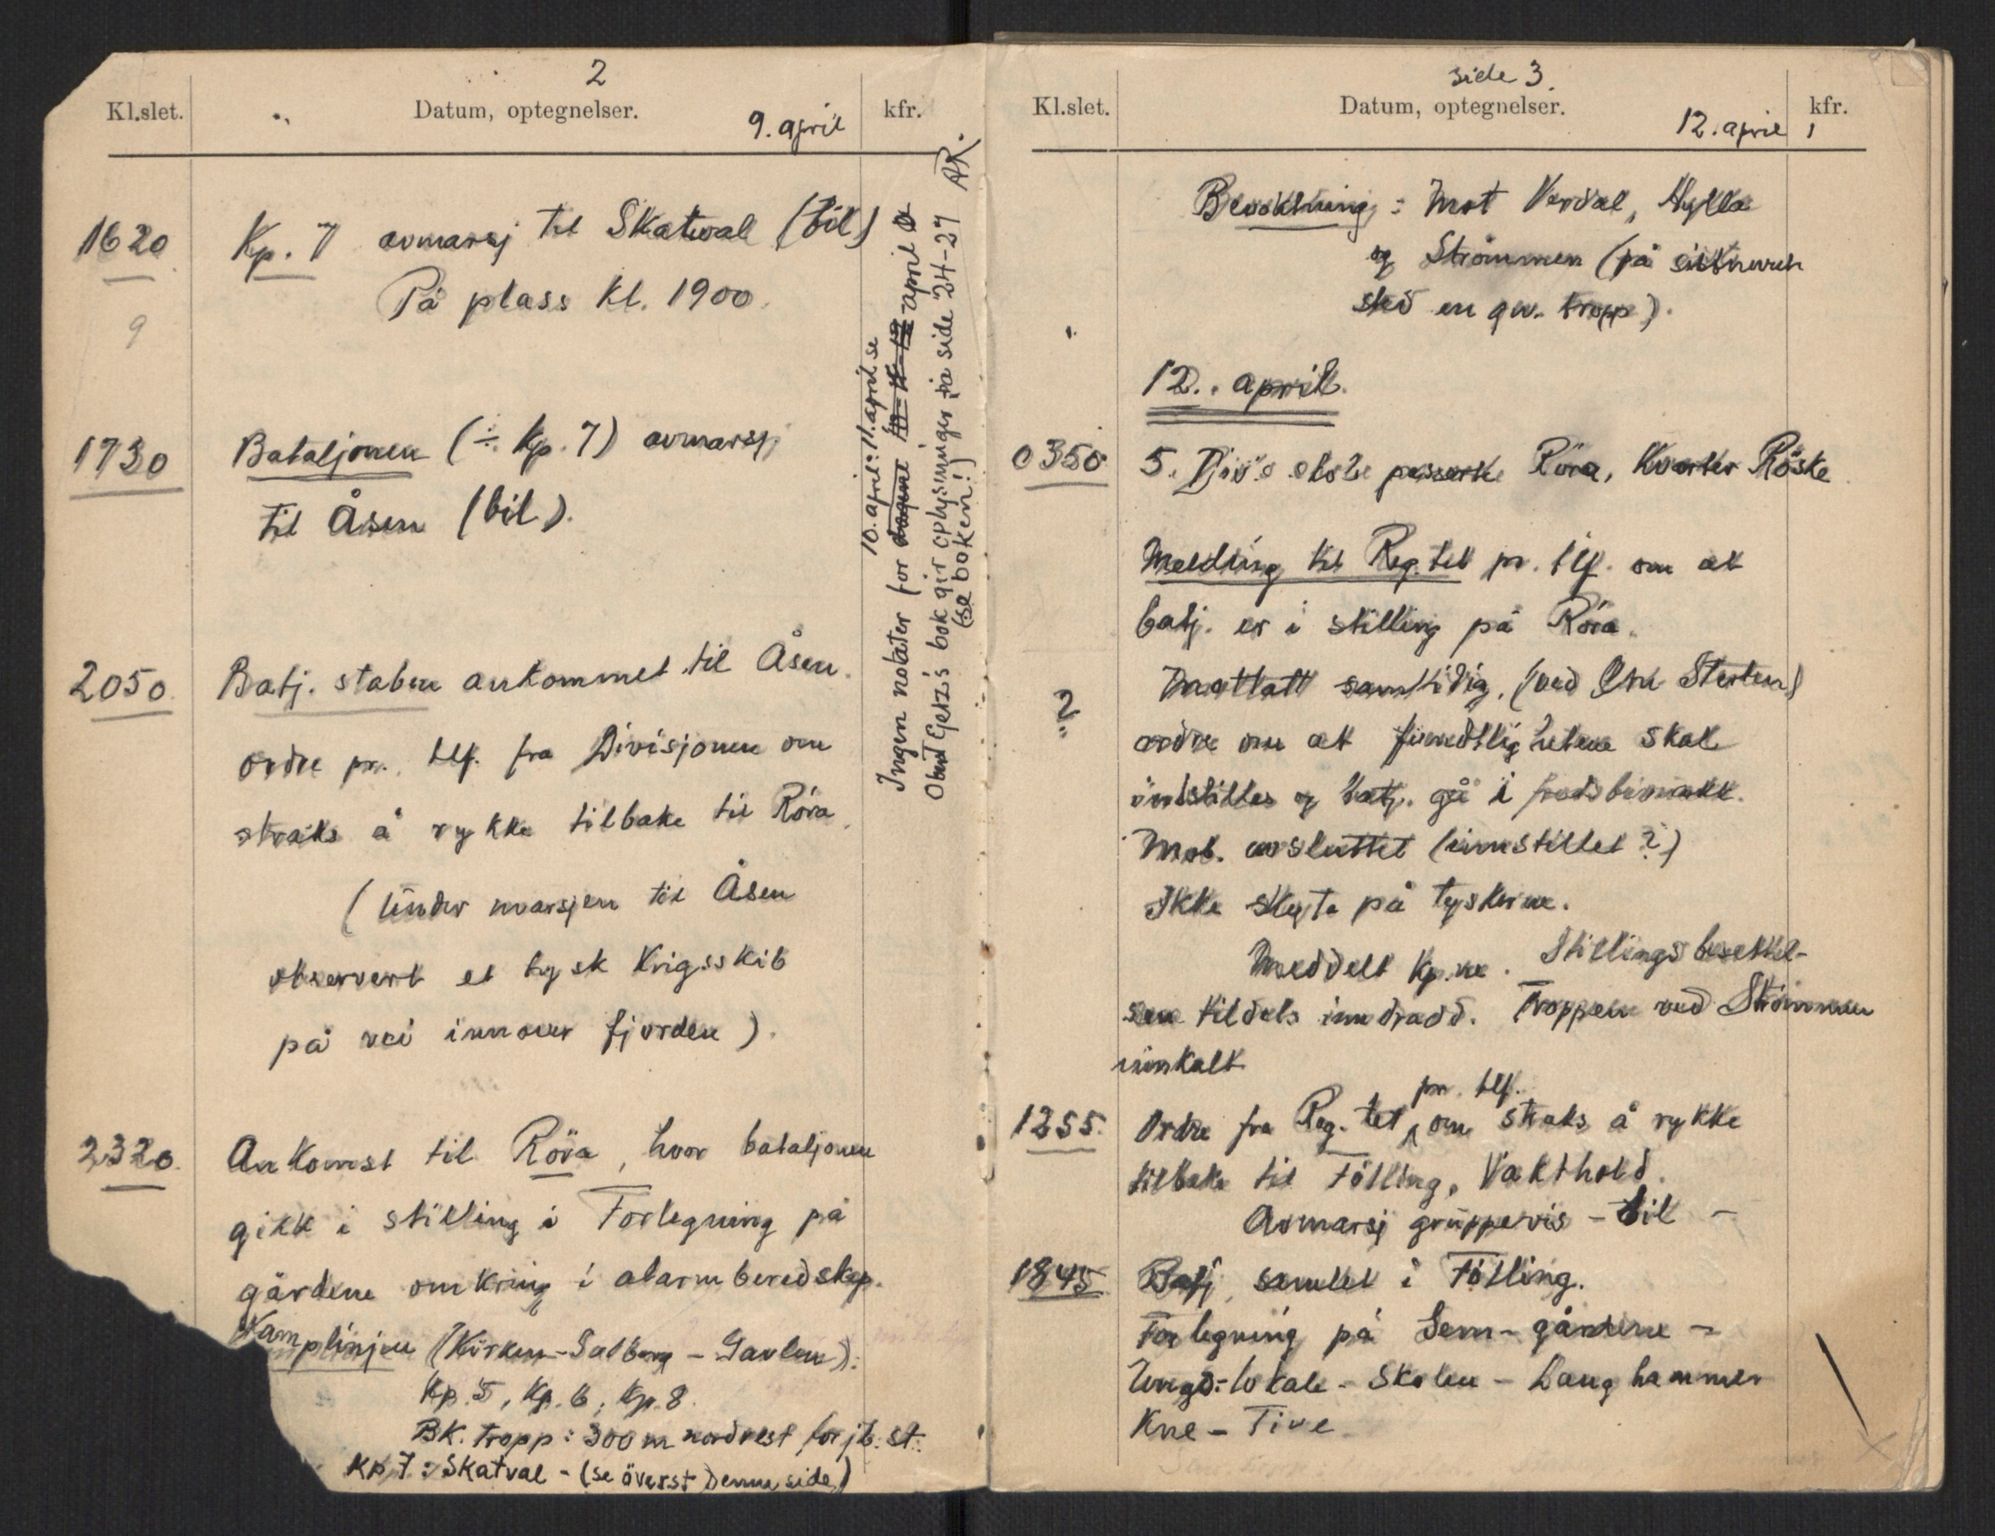 2
Kl.slet. Datum, optegnelser. 9. april kfr.
1620 Kp. 7 avmarsj til Skatval (bil)
På plass kl. 1900.
9
1730 Bataljonen (÷ Kp. 7) avmarsj
til Åsen (bil).
2050. Batj. staben ankommet til Åsen.
Ordre pr. tlf. fra Divisjonen om
straks å rykke tilbake til Röra.
(Under marsjen til Åsen
observert et tysk krigsskib
på vei innover fjorden).
2320. Ankomst til Röra, hvor bataljonen
gikk i stilling i Forlegning på
gårdene omkring i alarmberedskap.
Kamplinjen (Kirken-Salberg - Gavlen):
Kp. 5, Kp. 6, Kp. 8.
BK. tropp: 300 m nordvest for jb. st.
Kp 7: Skatval - (se överst denne side)
10. april: 11. april se
Ingen notater for dagene 10-11-12 april
Oberst Getz's bok gir oplysninger på side 24-27 AR.
(se boken!)
side 3.
Kl.slet. Datum, optegnelser. 12. april kfr.
Bevoktning: Mot Verdal, Hylla
og Strömmen (på sistnevnte
sted en gev. tropp).
12. april.
0350 5. Div's stab passerte Röra, Kvarter Röske
Melding til Reg.tet pr. tlf. om at
batj. er i stilling på Röra.
? Mottatt samtidig, (ved Sterten)
ordre om at fiendtlighetene skal
innstilles og batj. gå i fredsbivuakk.
Mob. avsluttet (innstillet?)
Ikke skyte på tyskerne.
Meddelt Kp.ne. Stillingsbesettel-
sen tildels inndradd. Troppen ved Strömmen
innkalt
1255. Ordre fra Reg.tet pr. tlf. om straks å rykke
tilbake til Fölling, Vakthold.
Avmarsj gruppevis - bil -
1845 Batj. samlet i Fölling.
Forlegning på Sem-gårdene -
Ungd.-lokale - Skolen - Langhammer
Kne - Tive